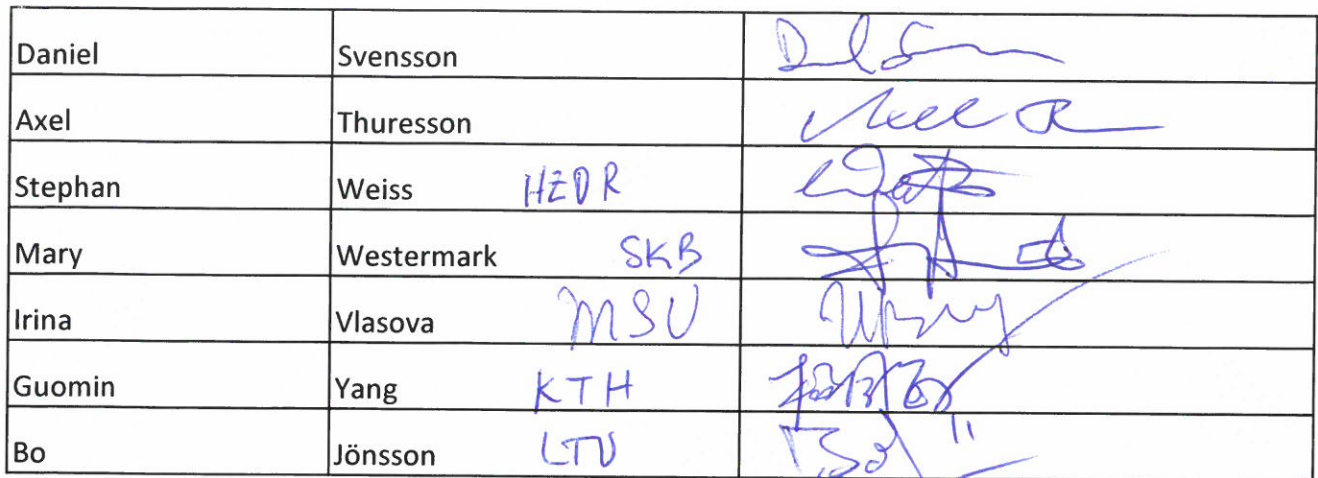 Daniel Svensson
Axel Thuresson
Stephan Weiss HZDR
Mary Westermark SKB
Irina Vlasova MSU
Guomin Yang KTH
Bo Jönsson LTU